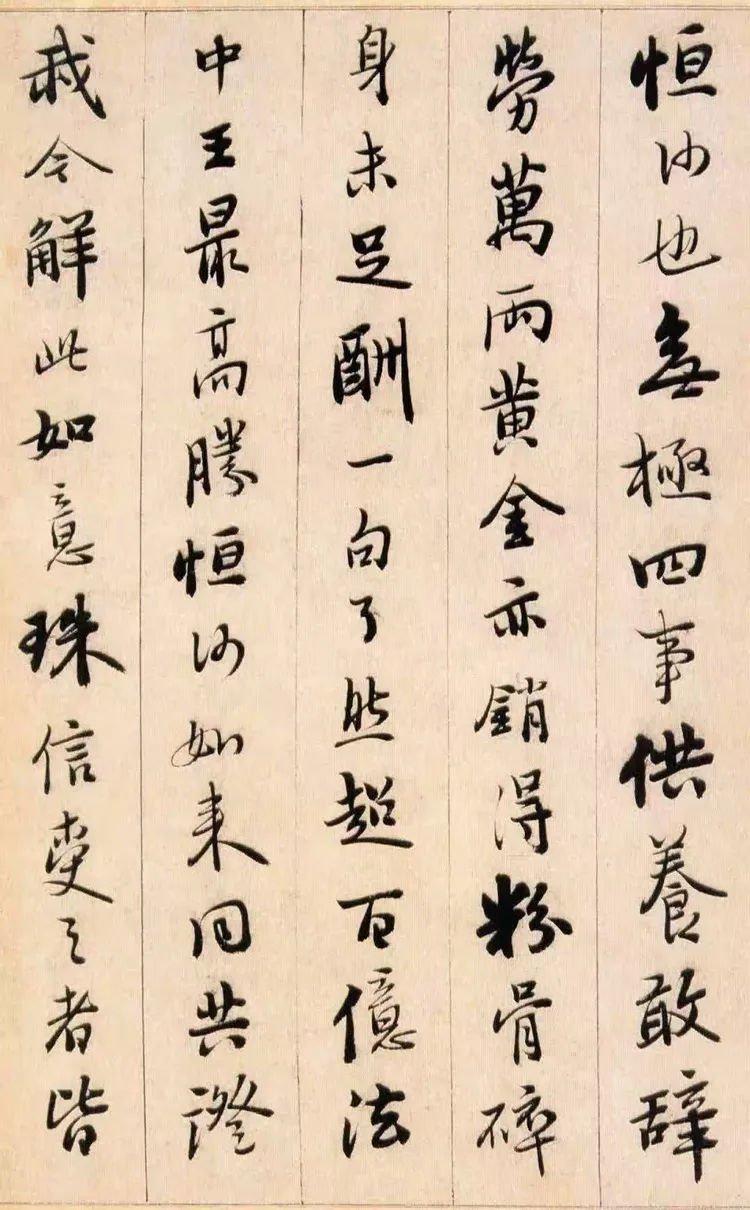 恒沙也無極四事供養敢辭
勞萬兩黃金亦銷得粉骨碎
身未足酬一句了然超百億法
中王最高勝恒沙如来同共證
我今解此如意珠信受之者皆